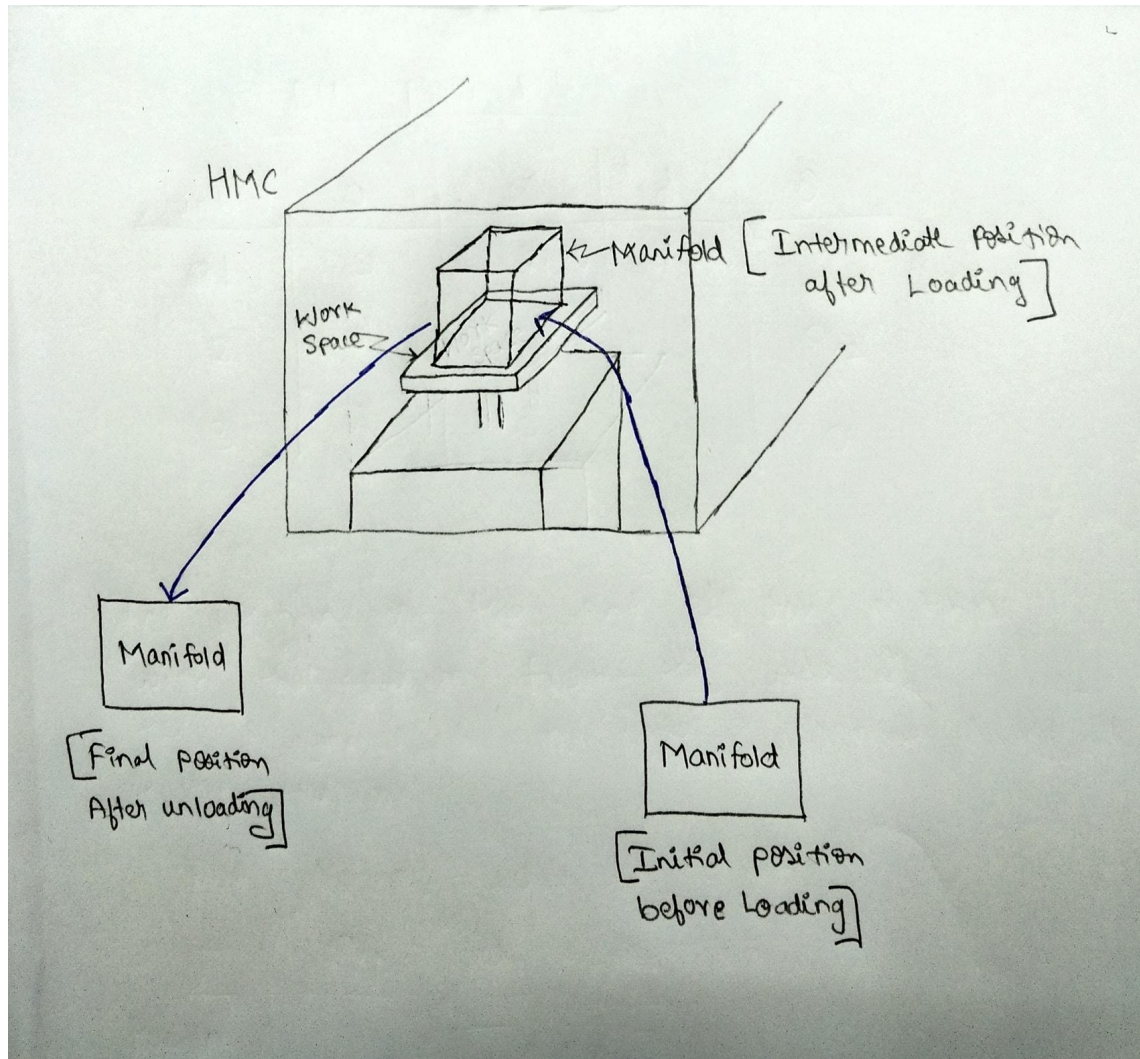 HMC
Manifold [Intermediate position
after Loading]
Work
Space
Manifold
[Final position
After unloading]
Manifold
[Initial position
before Loading]